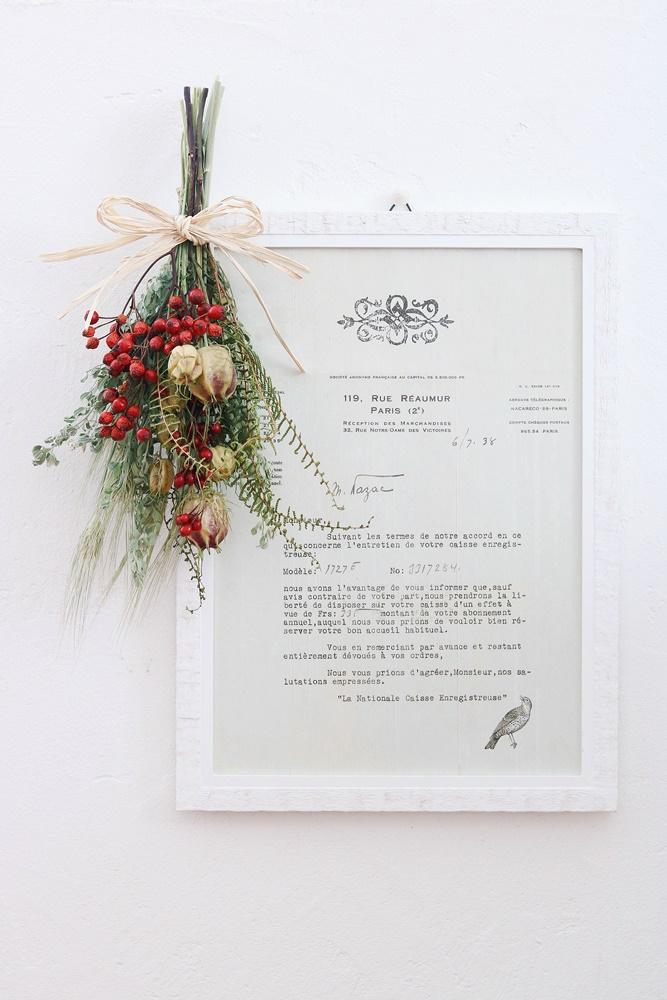 SOCIÉTÉ ANONYME FRANÇAISE AU CAPITAL DE
119, RUE RÉAUMUR
PARIS (2e)
RÉCEPTION DES MARCHANDISES
32, RUE NOTRE-DAME DES VICTOIRES
ADRESSE TÉLÉGRAPHIQUE :
NACARECO-99-PARIS
COMPTE CHÈQUES POSTAUX
PARIS
6/7.38
M. Nazac
Monsieur,
Suivant les termes de notre accord en ce
qui concerne l'entretien de votre caisse enregis-
treuse:
Modèle: 1727 E No: 3317284
nous avons l'avantage de vous informer que,sauf
avis contraire de votre part,nous prendrons la li-
berté de disposer sur votre caisse d'un effet à
vue de Frs: montant de votre abonnement
annuel,auquel nous vous prions de vouloir bien ré-
server votre bon accueil habituel.
Vous en remerciant par avance et restant
entièrement dévoués à vos ordres,
Nous vous prions d'agréer,Monsieur,nos sa-
lutations empressées.
"La Nationale Caisse Enregistreuse"